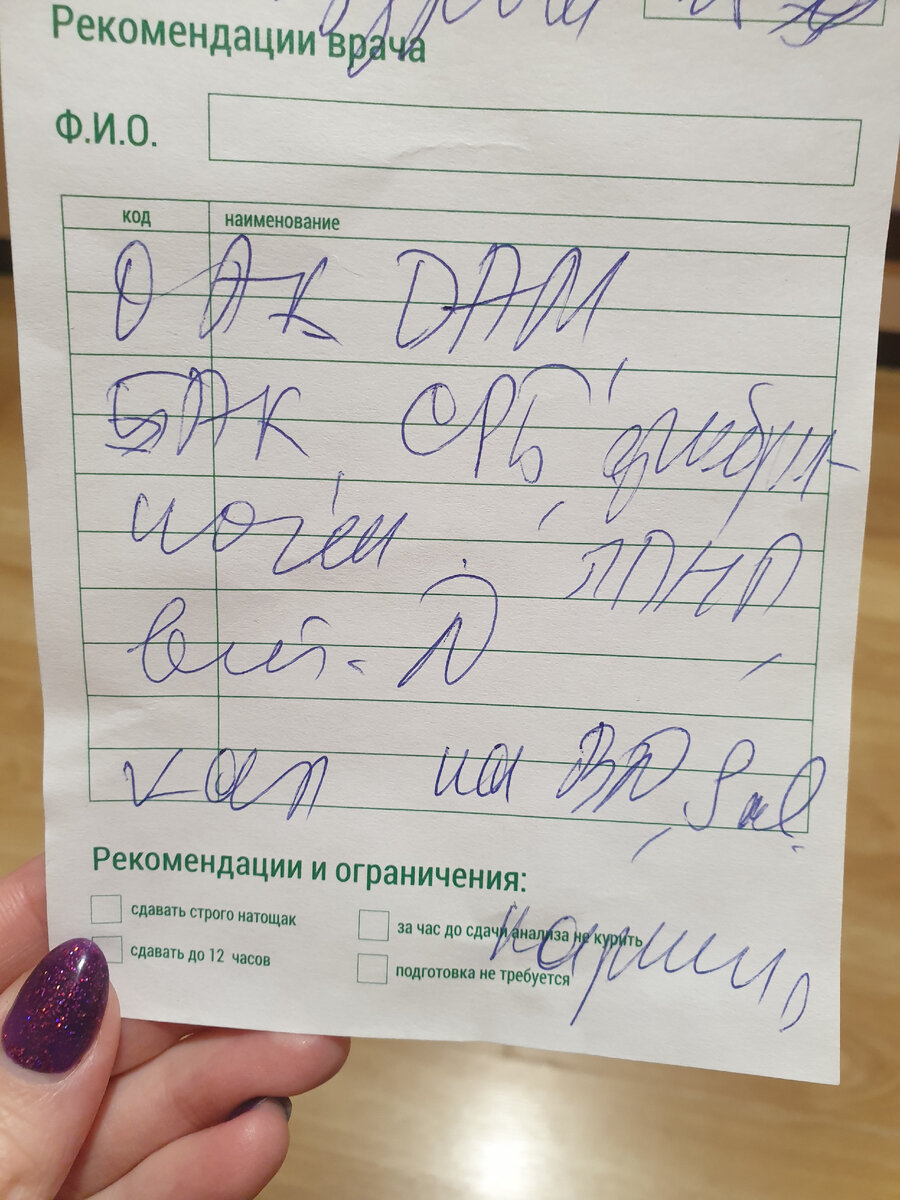 Рекомендации врача
Ф.И.О.
код наименование
ОАК ОАМ
БАК СРБ, фибри-
ноген, ЛПНП
вит. D,
кал на ВД,
Рекомендации и ограничения:
сдавать строго натощак
за час до сдачи анализа не курить
сдавать до 12 часов
подготовка не требуется